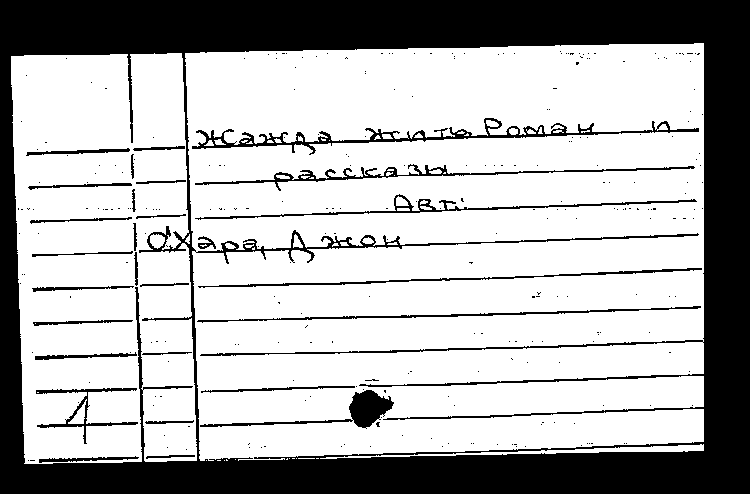 Жажда жить Роман и
рассказы
Авт:
О'Хара, Джон
1